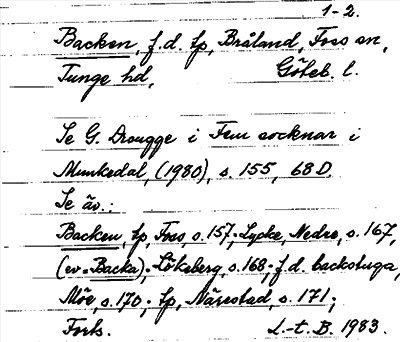 1-2.
Backen, f.d. tp, Bråland, Foss sn,
Tunge hd, Göteb. l.
Se G. Drougge i Fem socknar i
Munkedal, (1980), s. 155, 68 D.
Se äv.:
Backen, tp, Foss, s. 157. Lycke, Nedre, s. 167,
(ev. Backa). Lökeberg, s. 168. f.d. backstuga,
Möe, s. 170. tp, Närestad, s. 171;
Forts. L.-t. B. 1983.